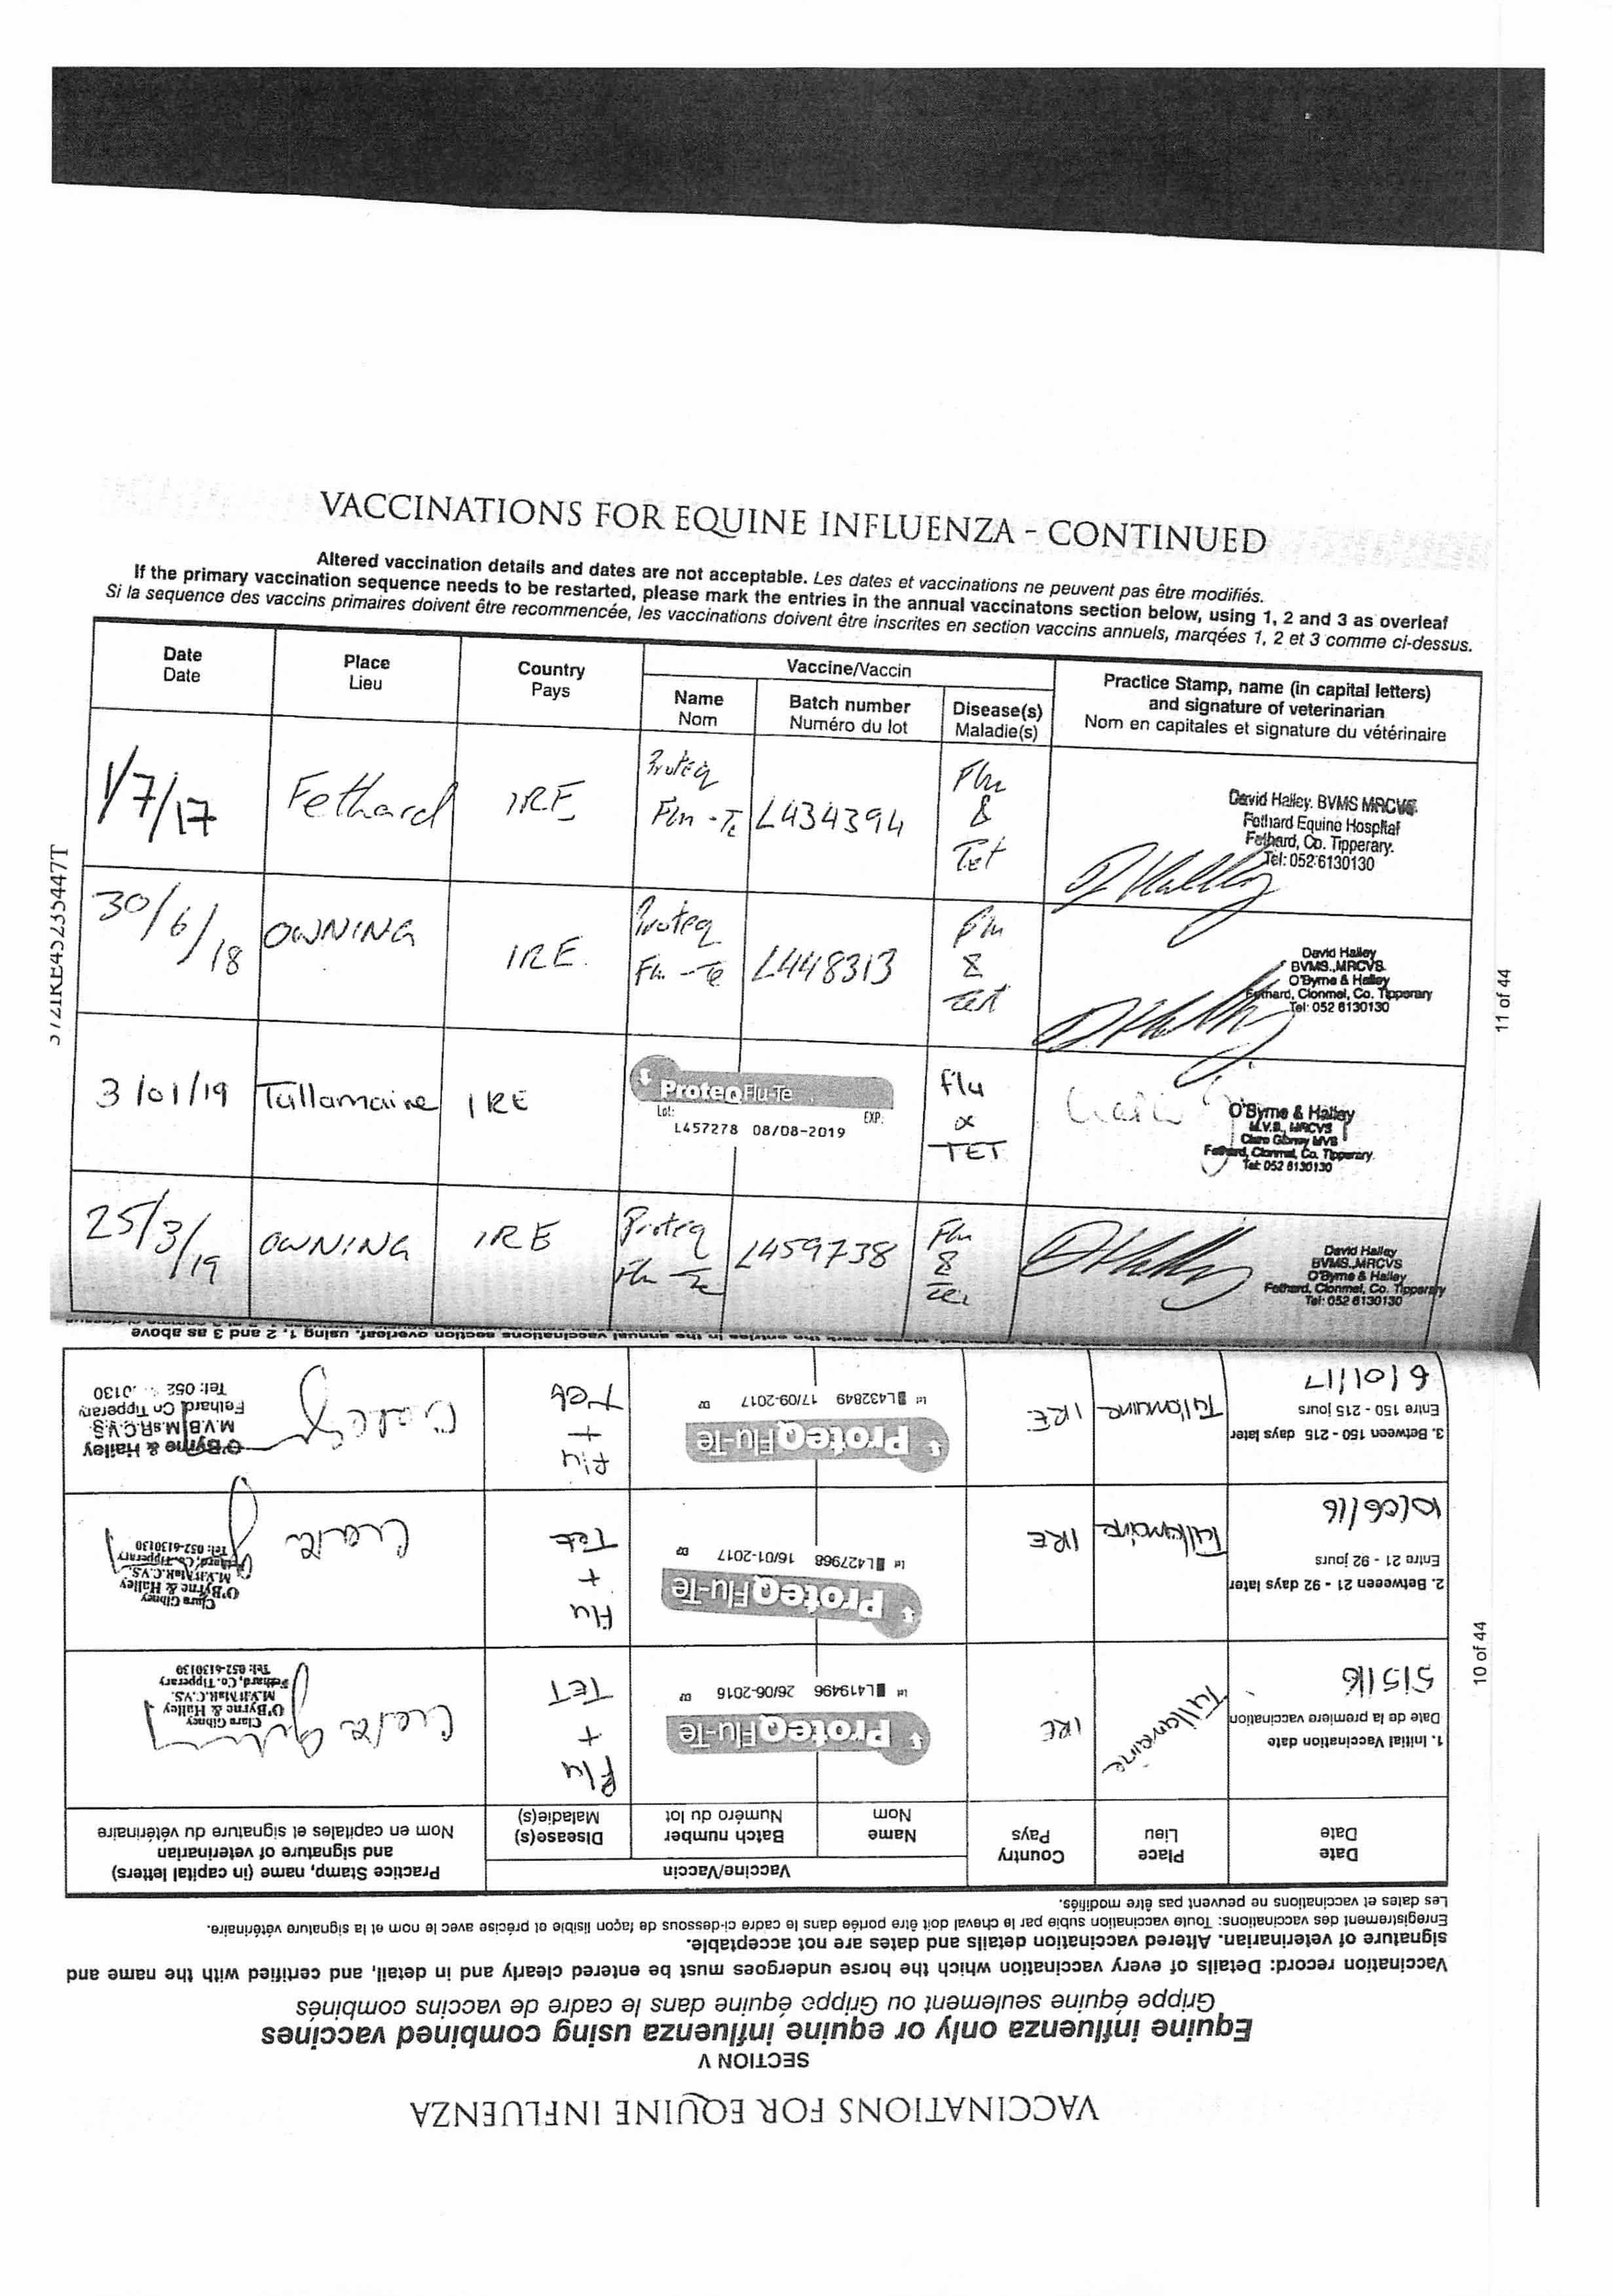 VACCINATIONS FOR EQUINE INFLUENZA - CONTINUED
Altered vaccination details and dates are not acceptable. Les dates et vaccinations ne peuvent pas être modifiés.
If the primary vaccination sequence needs to be restarted, please mark the entries in the annual vaccinatons section below, using 1, 2 and 3 as overleaf
Si la sequence des vaccins primaires doivent être recommencée, les vaccinations doivent être inscrites en section vaccins annuels, marqées 1, 2 et 3 comme ci-dessus.
Date
Date
Place
Lieu
Country
Pays
Vaccine/Vaccin
Name
Nom
Batch number
Numéro du lot
Disease(s)
Maladie(s)
Practice Stamp, name (in capital letters)
and signature of veterinarian
Nom en capitales et signature du vétérinaire
1/7/17
Fethard
IRE
Proteq
Flu-Te
L434394
Flu
&
Tet
David Halley. BVMS MRCVS
Fethard Equine Hospital
Fethard, Co. Tipperary.
Tel: 052 6130130
D Halley
30/6/18
OWNING
IRE.
Proteq
Flu-Te
L448313
Flu
&
Tet
David Halley
BVMS., MRCVS
O'Byrne & Halley
Fethard, Clonmel, Co. Tipperary
Tel: 052 6130130
D Halley
3/01/19
Tullamaine
IRE
ProteqFlu-Te
Lot:
EXP:
L457278 08/08-2019
Flu
&
TET
O'Byrne & Halley
M.V.B., MRCVS
Clare Gibney MVB
Fethard, Clonmel, Co. Tipperary.
Tel: 052 6130130
25/3/19
OWNING
IRE
Proteq
Flu-Te
L459738
Flu
&
Tet
D Halley
David Halley
BVMS., MRCVS
O'Byrne & Halley
Fethard, Clonmel, Co. Tipperary
Tel: 052 6130130
11 of 44
VACCINATIONS FOR EQUINE INFLUENZA
SECTION V
Equine influenza only or equine influenza using combined vaccines
Grippe équine seulement ou Grippe équine dans le cadre de vaccins combinés
Vaccination record: Details of every vaccination which the horse undergoes must be entered clearly and in detail, and certified with the name and
signature of veterinarian. Altered vaccination details and dates are not acceptable.
Enregistrement des vaccinations: Toute vaccination subie par le cheval doit être portée dans le cadre ci-dessous de façon lisible et précise avec le nom et la signature vétérinaire.
Les dates et vaccinations ne peuvent pas être modifiés.
Date
Date
Place
Lieu
Country
Pays
Vaccine/Vaccin
Name
Nom
Batch number
Numéro du lot
Disease(s)
Maladie(s)
Practice Stamp, name (in capital letters)
and signature of veterinarian
Nom en capitales et signature du vétérinaire
1. Initial Vaccination date
Date de la premiere vaccination
5/5/16
Tullamaine
IRE
ProteqFlu-Te
Lot L419496 26/06-2016
Flu
+
TET
Clara Gibney
O'Byrne & Halley
M.V.B M.R.C.V.S.
Fethard, Co. Tipperary
Tel: 052-6130130
2. Betweeen 21 - 92 days later
Entre 21 - 92 jours
10/06/16
Tullamaine
IRE
ProteqFlu-Te
Lot L427968 16/01-2017
Flu
+
Tet
Clara Gibney
O'Byrne & Halley
M.V.B M.R.C.V.S.
Fethard, Co. Tipperary
Tel: 052-6130130
3. Between 150 - 215 days later
Entre 150 - 215 jours
6/01/17
Tullamaine
IRE
ProteqFlu-Te
Lot L432849 17/09-2017
Flu
+
Tet
O'Byrne & Halley
M.V.B M.R.C.V.S.
Fethard Co Tipperary
Tel: 052 0130
10 of 44